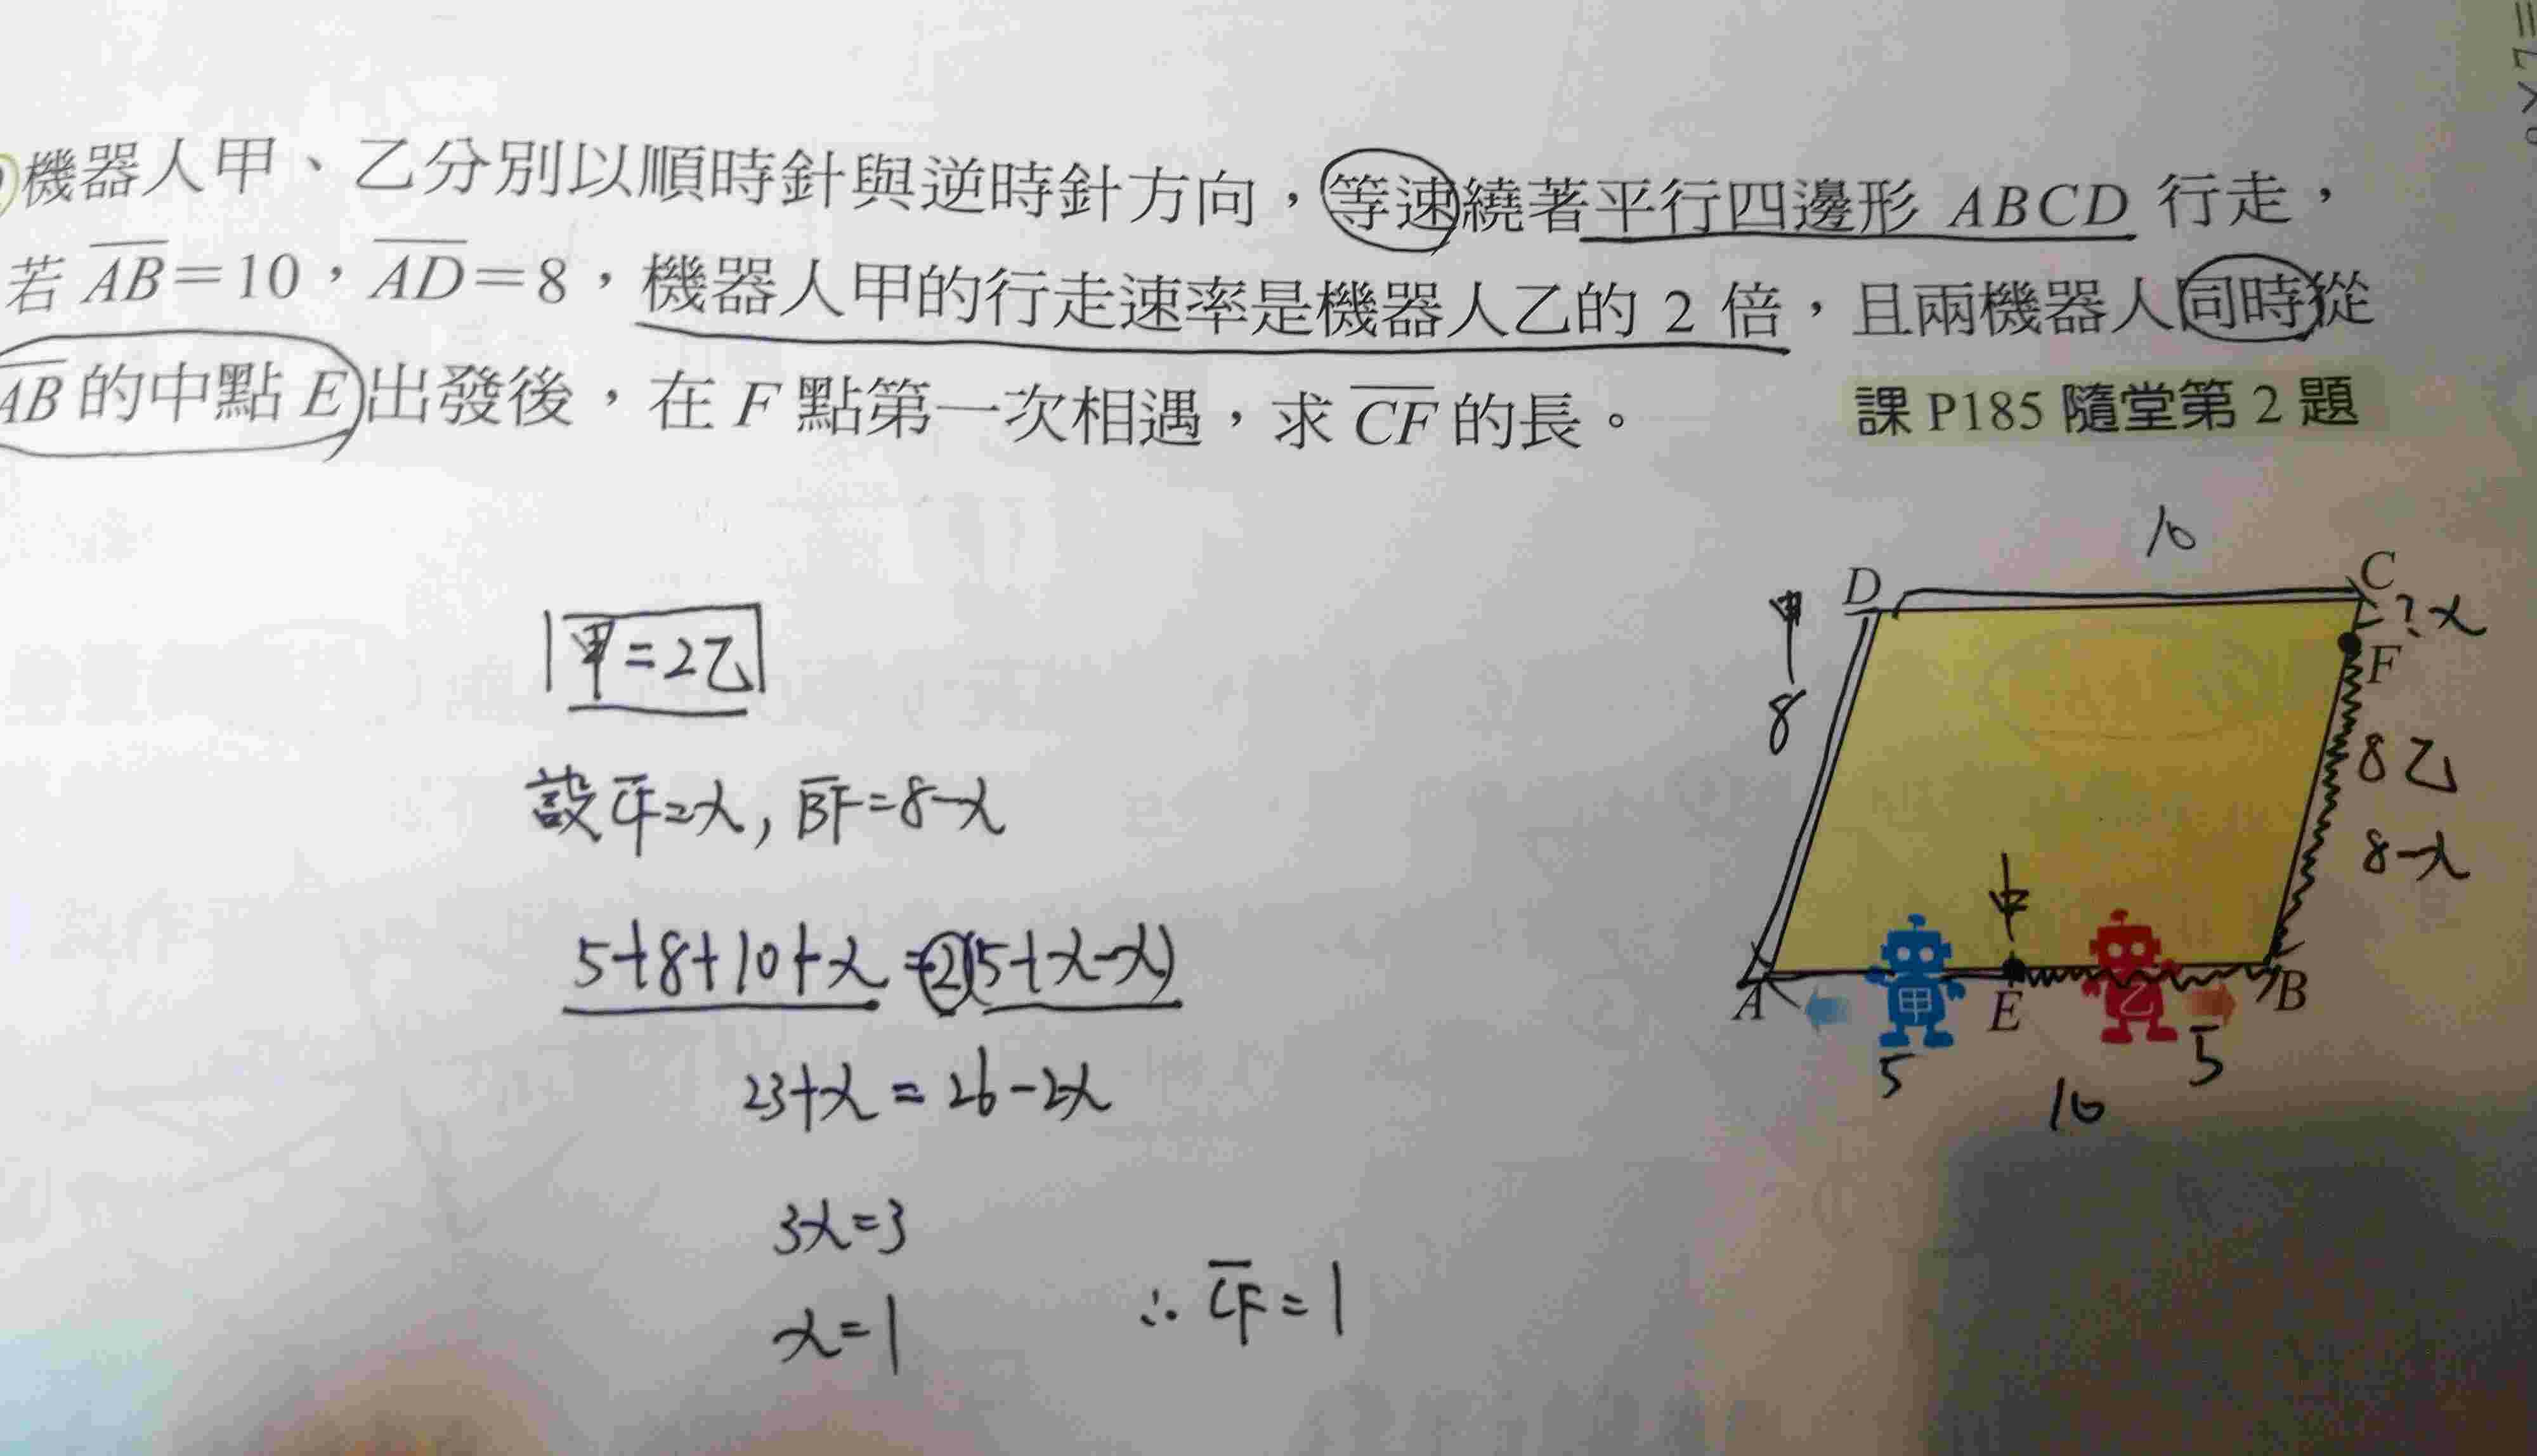 機器人甲、乙分別以順時針與逆時針方向，等速繞著平行四邊形 ABCD 行走，
若 AB=10，AD=8，機器人甲的行走速率是機器人乙的 2 倍，且兩機器人同時從
AB 的中點 E 出發後，在 F 點第一次相遇，求 CF 的長。
課 P185 隨堂第 2 題
甲=2乙
設 CF=x, BF=8-x
5+8+10+x=2(5+x-x)
23+x=26-2x
3x=3
x=1
∴ CF=1
10
D
C
甲
?x
F
8
8乙
8-x
中
A
甲
E
乙
B
5
5
10